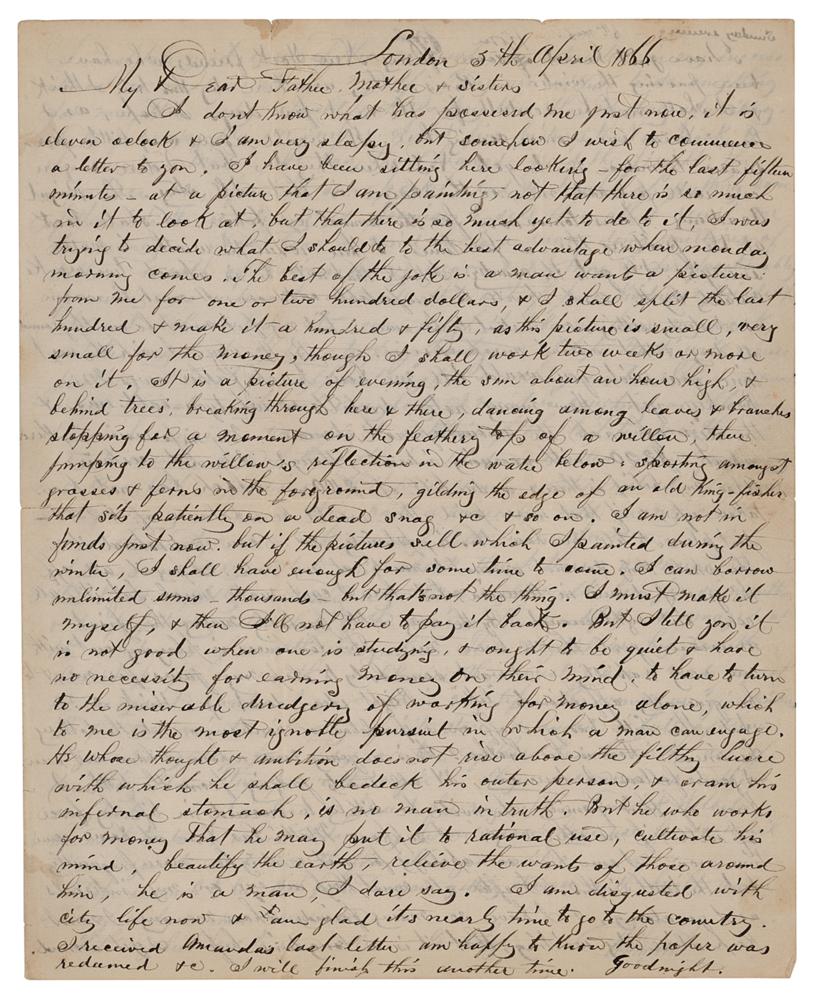 London 5th April 1866
My Dear Father, Mother & Sisters
I dont know what has possessed me just now, it is
eleven oclock & I am very slepy, but somehow I wish to commence
a letter to you. I have been sitting here looking – for the last fifteen
minutes – at a picture that I am painting, not that there is so much
in it to look at, but that there is so much yet to do to it, I was
trying to decide what I should do to the best advantage when monday
morning comes. The best of the joke is a man wants a picture
from me for one or two hundred dollars, & I shall split the last
hundred & make it a hundred & fifty, as this picture is small, very
small for the money, though I shall work two weeks or more
on it. It is a picture of evening, the sun about an hour high, &
behind trees, breaking through here & there, dancing among leaves & branches
stopping for a moment on the feathery top of a willow, then
jumping to the willow's reflection in the water below: sporting amongst
grasses & ferns in the forground, gilding the edge of an old King-fisher
that sits patiently on a dead snag &c & so on. I am not in
funds just now. but if the pictures sell which I painted during the
winter, I shall have enough for some time to come. I can borrow
unlimited sums – thousands – but that's not the thing. I must make it
myself, & then I'll not have to pay it back. But I tell you it
is not good when one is studying, & ought to be quiet & have
no necessity for earning money on their mind, to have to turn
to the miserable drudgery of working for money alone, which
to me is the most ignoble pursuit in which a man can engage.
He whose thought & ambition does not rise above the filthy lucre
with which he shall bedeck his outer person, & cram his
infernal stomach, is no man in truth. But he who works
for money that he may put it to rational use, cultivate his
mind, beautify the earth, relieve the wants of those around
him, he is a man, I dare say. I am disgusted with
city life now & am glad it's nearly time to go to the country.
I received Amanda's last letter am happy to know the paper was
redeemed &c. I will finish this another time. Goodnight.